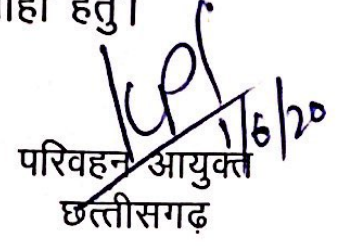 हेतु।
1/6/20
परिवहन आयुक्त
छत्तीसगढ़